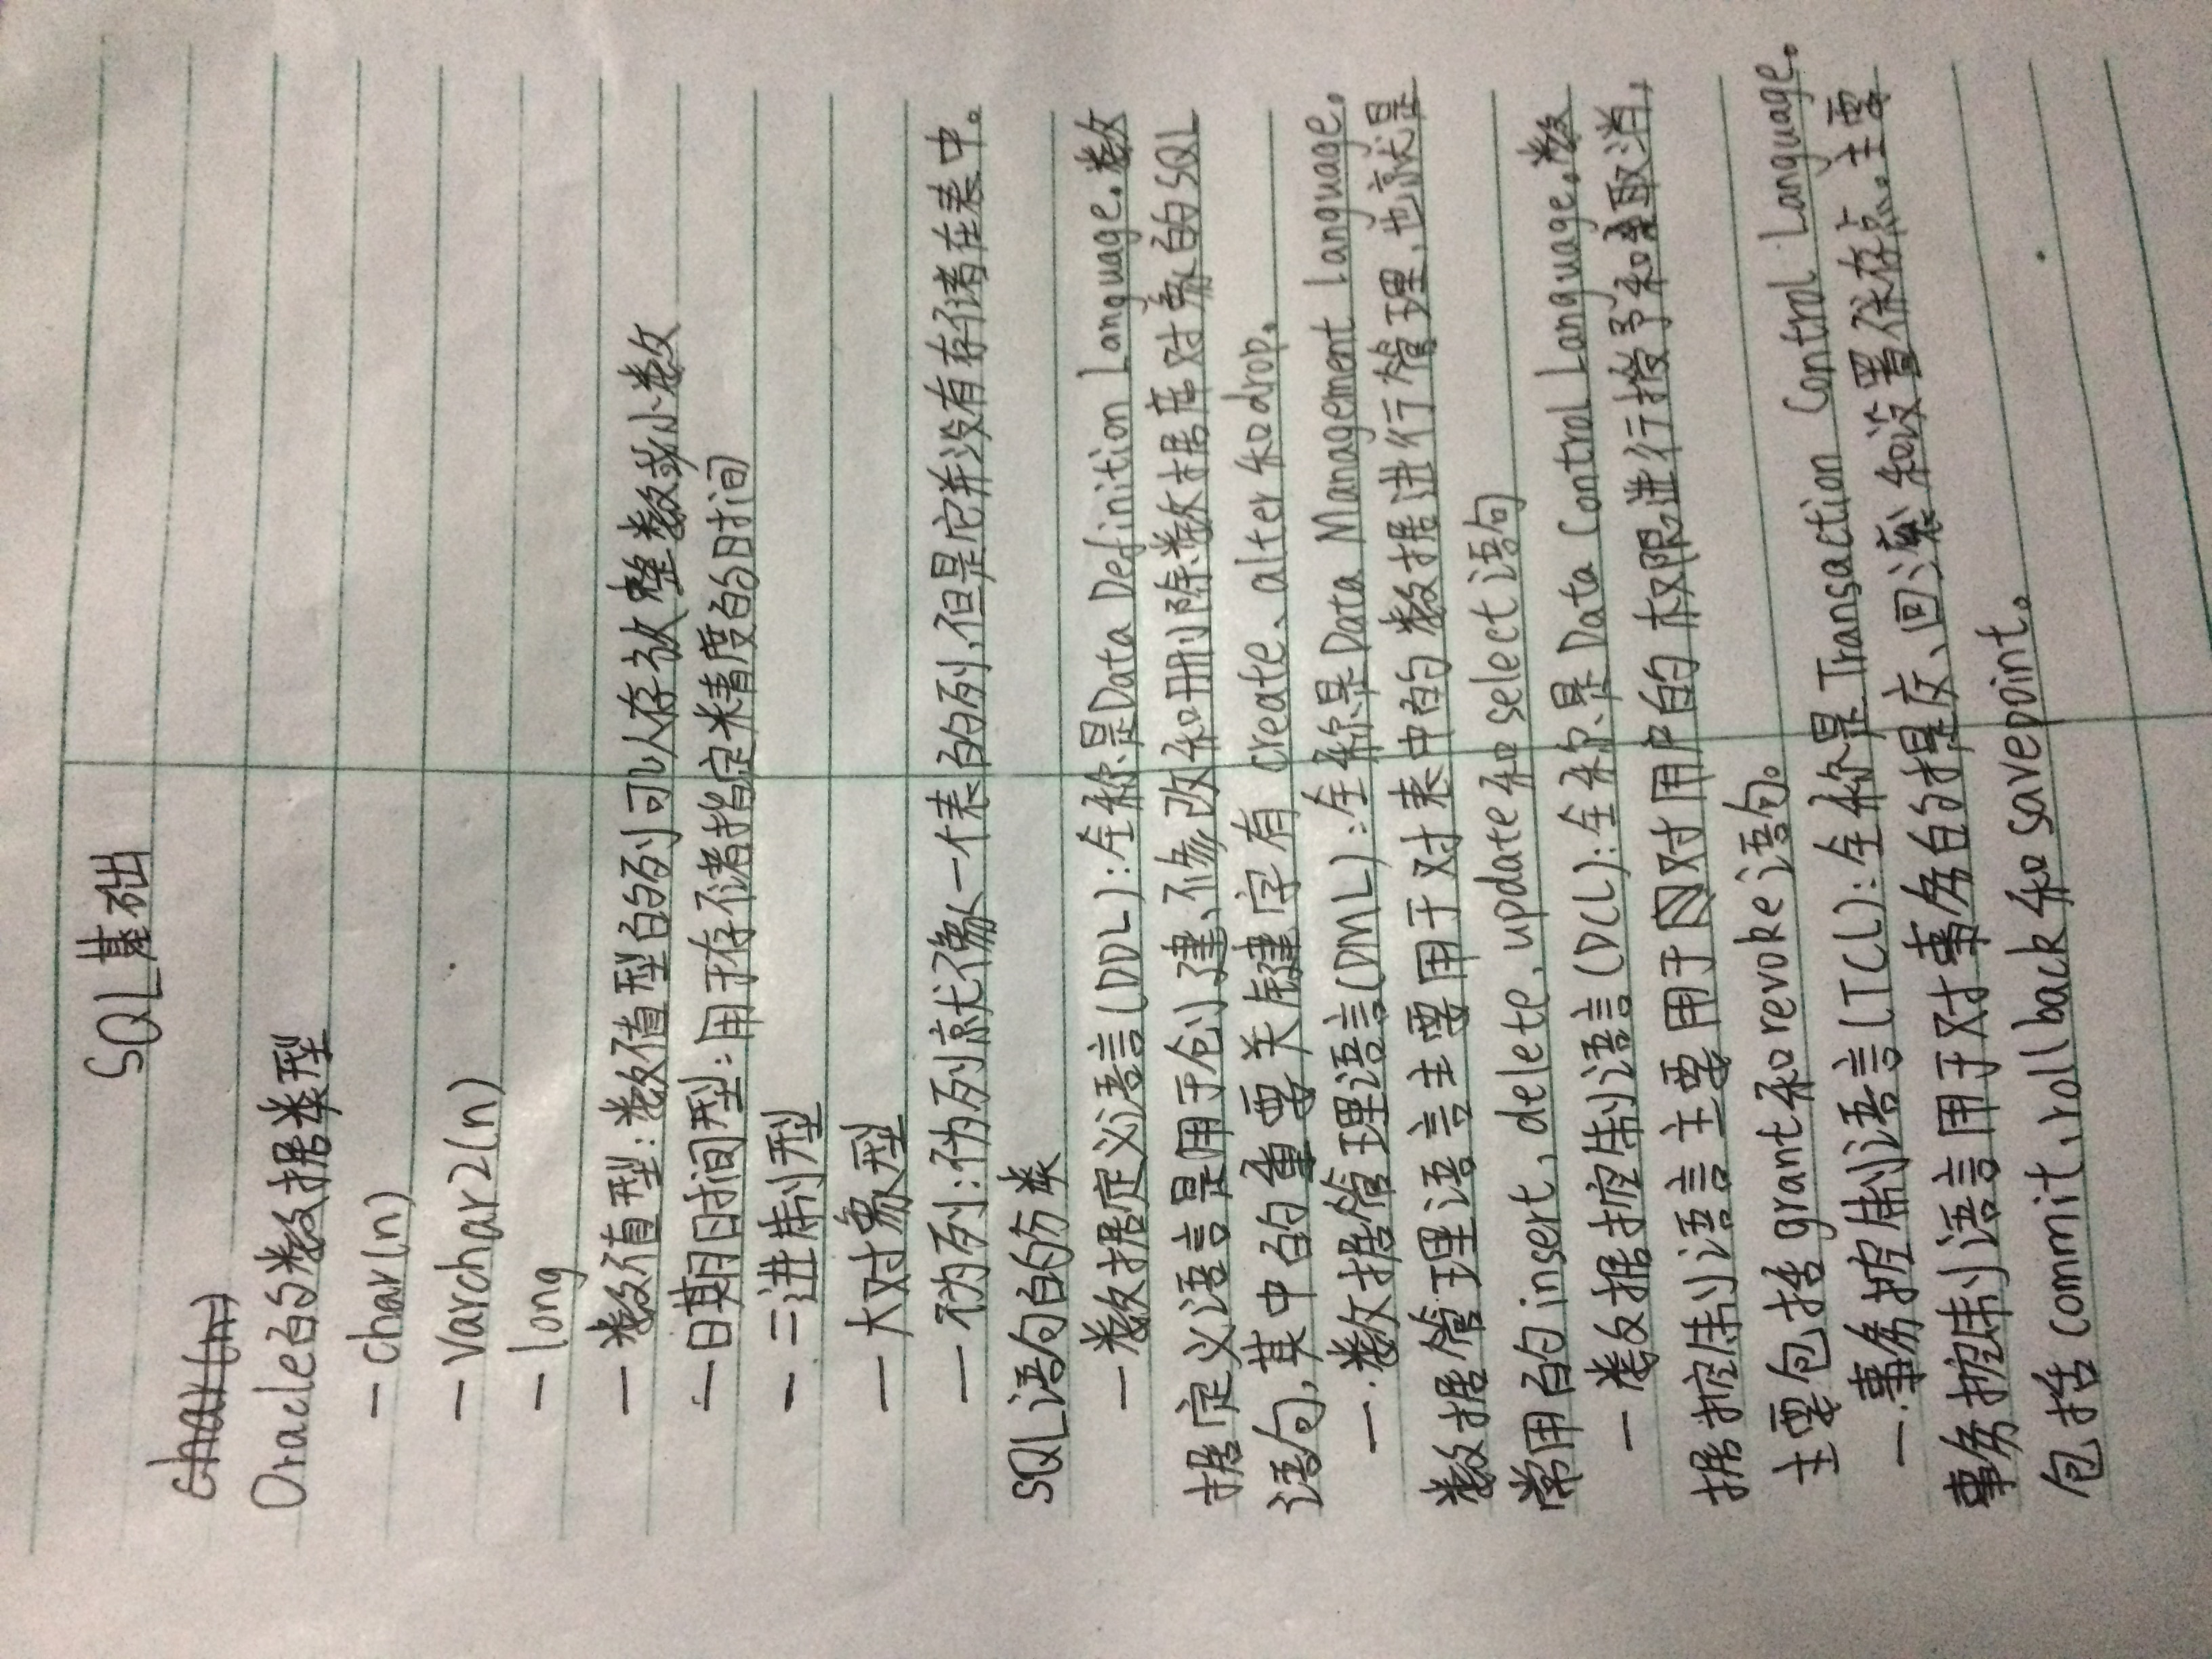 SQL基础
char(n)
Oracle的数据类型
— char(n)
— Varchar2(n)
— long
— 数值型:数值型的列可以存放整数或小数
— 日期时间型:用于存储指定精度的时间
— 二进制型
— 大对象型
— 伪列:伪列就像一个表的列,但是它并没有存储在表中。
SQL语句的分类
— 数据定义语言(DDL):全称是Data Definition Language。数
据定义语言是用于创建、修改和删除数据库对象的SQL
语句,其中的重要关键字有 create、alter和drop。
— 数据管理语言(DML):全称是Data Management Language。
数据管理语言主要用于对表中的数据进行管理,也就是
常用的insert、delete、update和select语句
— 数据控制语言(DCL):全称是Data Control Language。数
据控制语言主要用于对用户的权限进行授予和取消,
主要包括grant和revoke语句。
— 事务控制语言(TCL):全称是Transaction Control Language。
事务控制语言用于对事务的提交、回滚和设置保存点。主要
包括commit、rollback和savepoint。